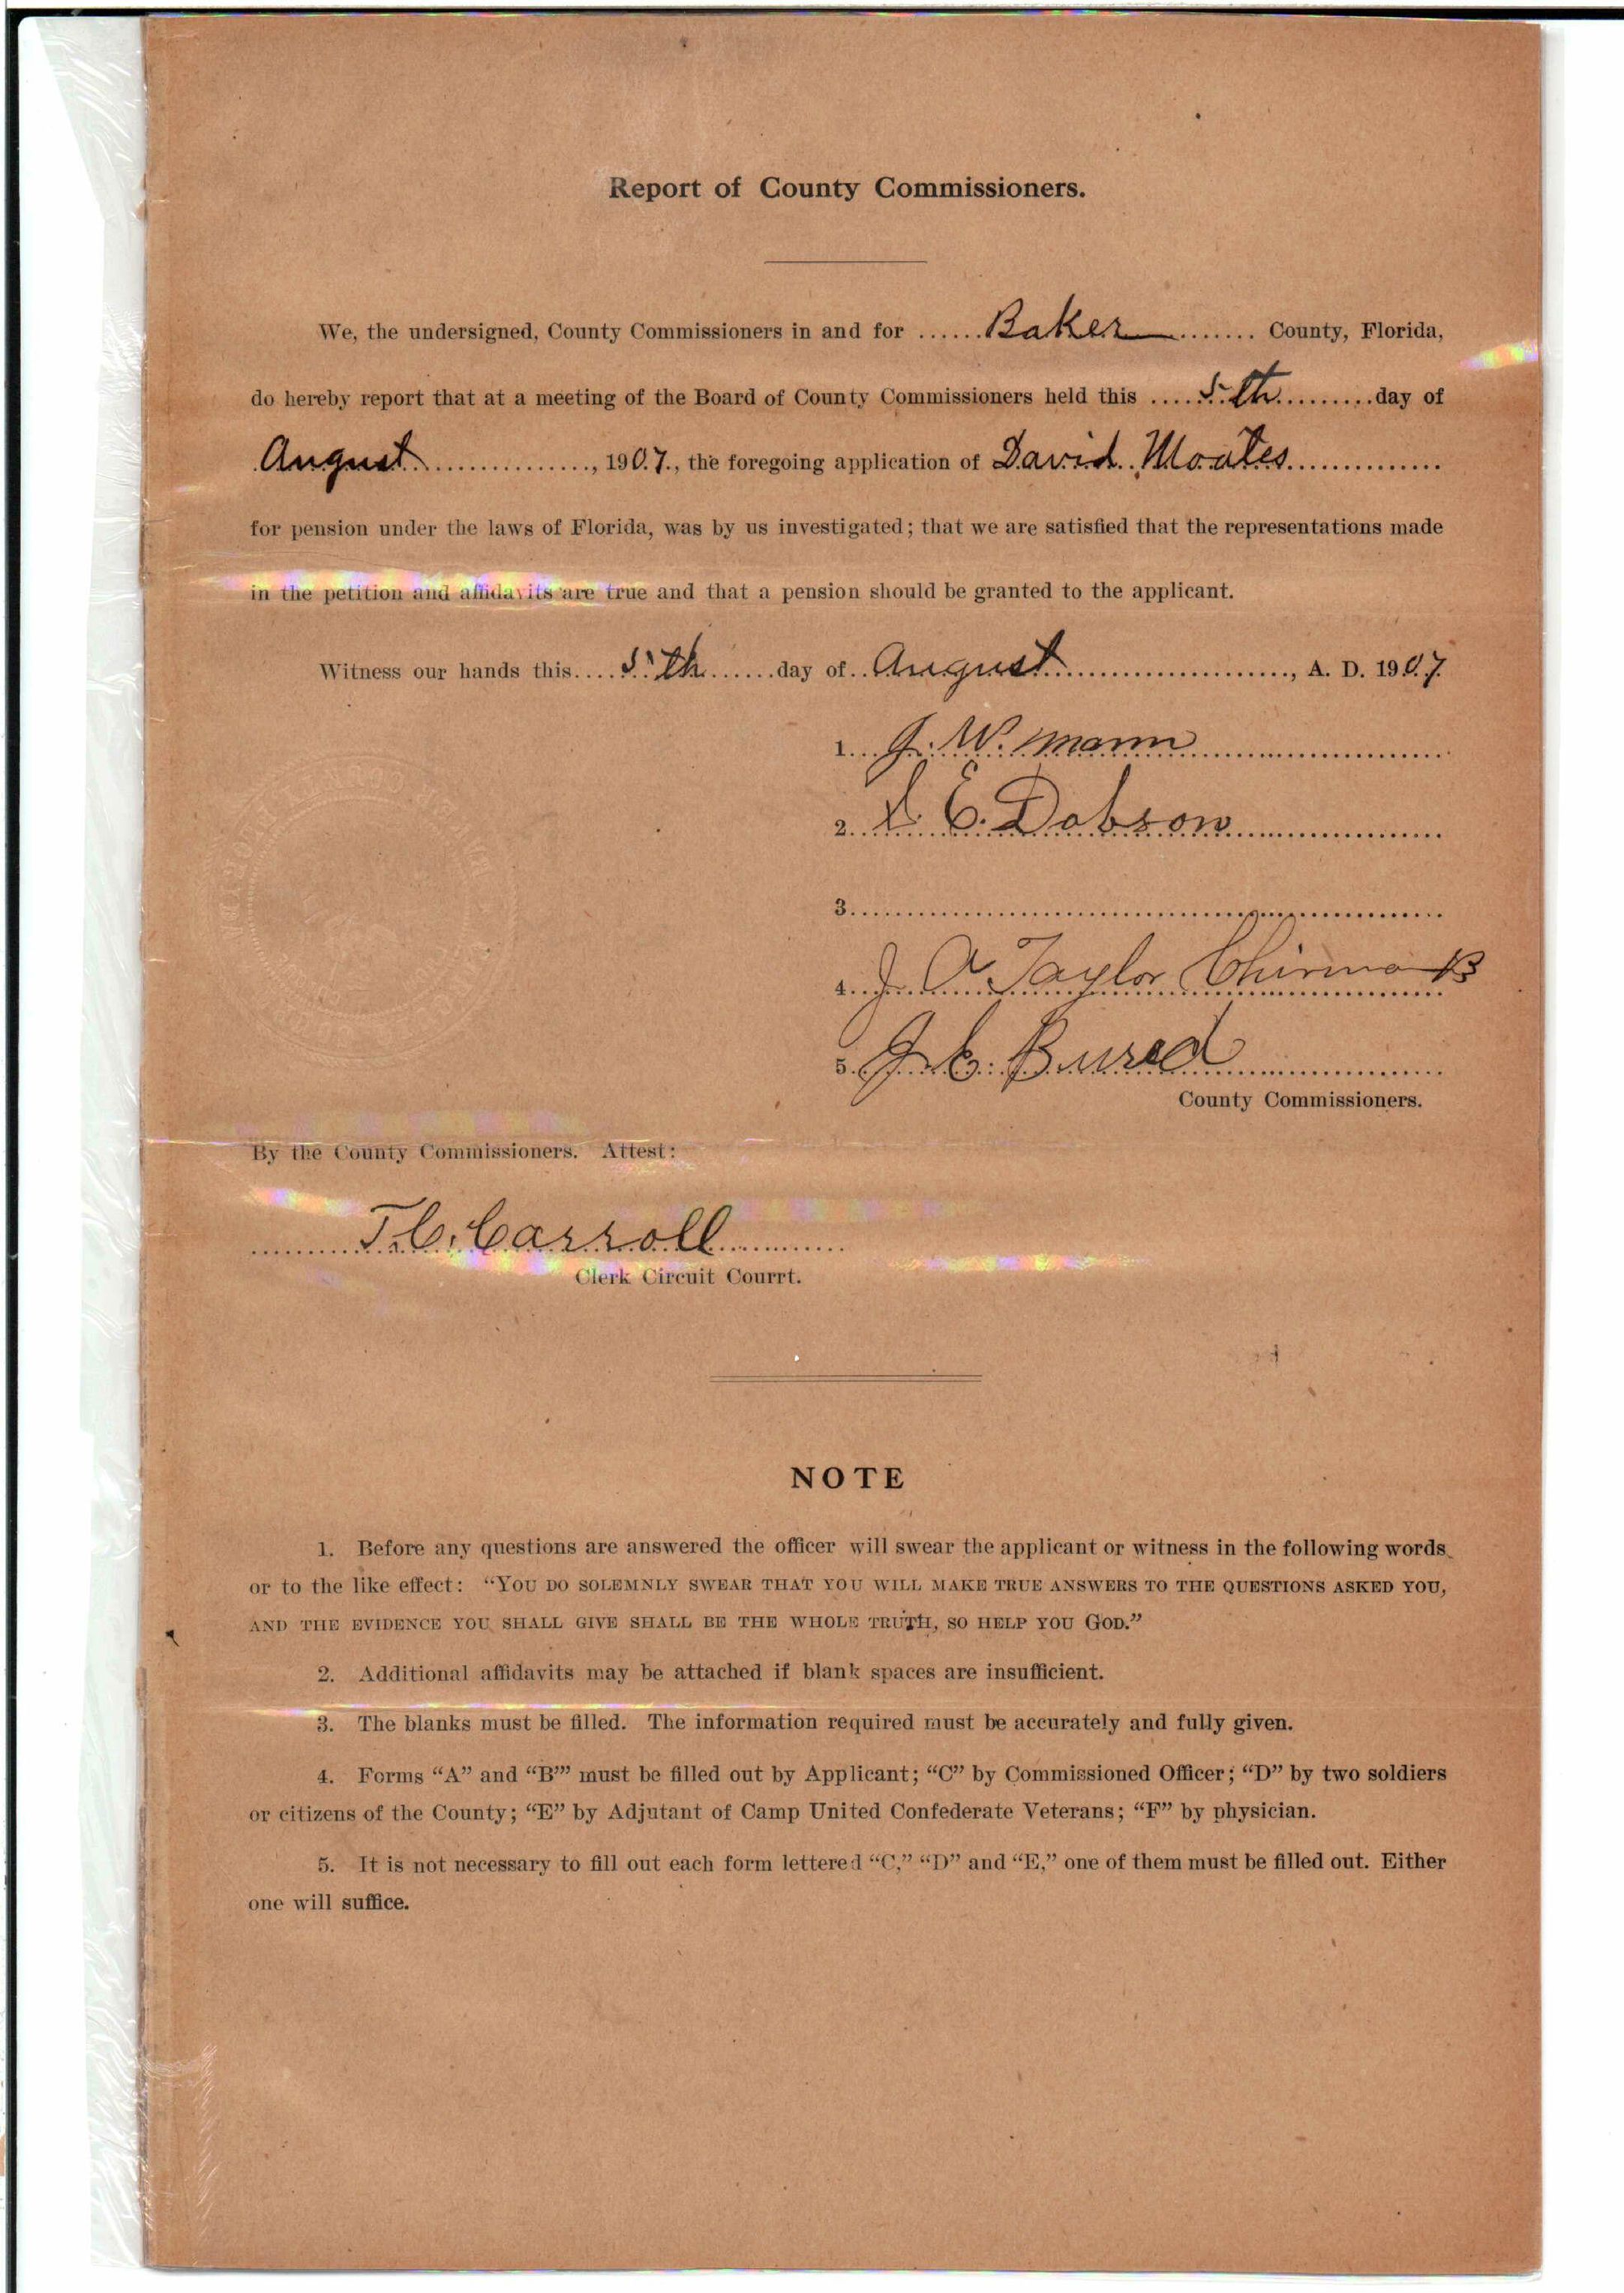 Report of County Commissioners.
We, the undersigned, County Commissioners in and for ......Baker........ County, Florida,
do hereby report that at a meeting of the Board of County Commissioners held this ....5th.........day of
August................, 1907., the foregoing application of David Moates..............
for pension under the laws of Florida, was by us investigated; that we are satisfied that the representations made
in the petition and affidavits are true and that a pension should be granted to the applicant.
Witness our hands this....5th......day of..August......................, A. D. 1907.
1...J. W. Mann
2... E. Dobson
3.
4..J A Taylor
5.J. C.
County Commissioners.
By the County Commissioners. Attest:
T. C. Carroll
Clerk Circuit Courrt.
NOTE
1. Before any questions are answered the officer will swear the applicant or witness in the following words
or to the like effect: “YOU DO SOLEMNLY SWEAR THAT YOU WILL MAKE TRUE ANSWERS TO THE QUESTIONS ASKED YOU,
AND THE EVIDENCE YOU SHALL GIVE SHALL BE THE WHOLE TRUTH, SO HELP YOU GOD.”
2. Additional affidavits may be attached if blank spaces are insufficient.
3. The blanks must be filled. The information required must be accurately and fully given.
4. Forms “A” and “B’” must be filled out by Applicant; “C” by Commissioned Officer; “D” by two soldiers
or citizens of the County; “E” by Adjutant of Camp United Confederate Veterans; “F” by physician.
5. It is not necessary to fill out each form lettered “C,” “D” and “E,” one of them must be filled out. Either
one will suffice.